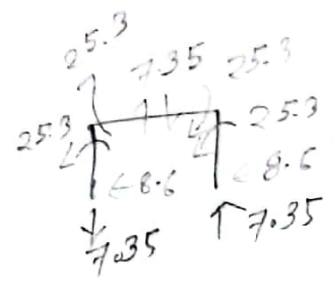 25.3
7.35 25.3
25.3 25.3
8.6 8.6
7.35 7.35